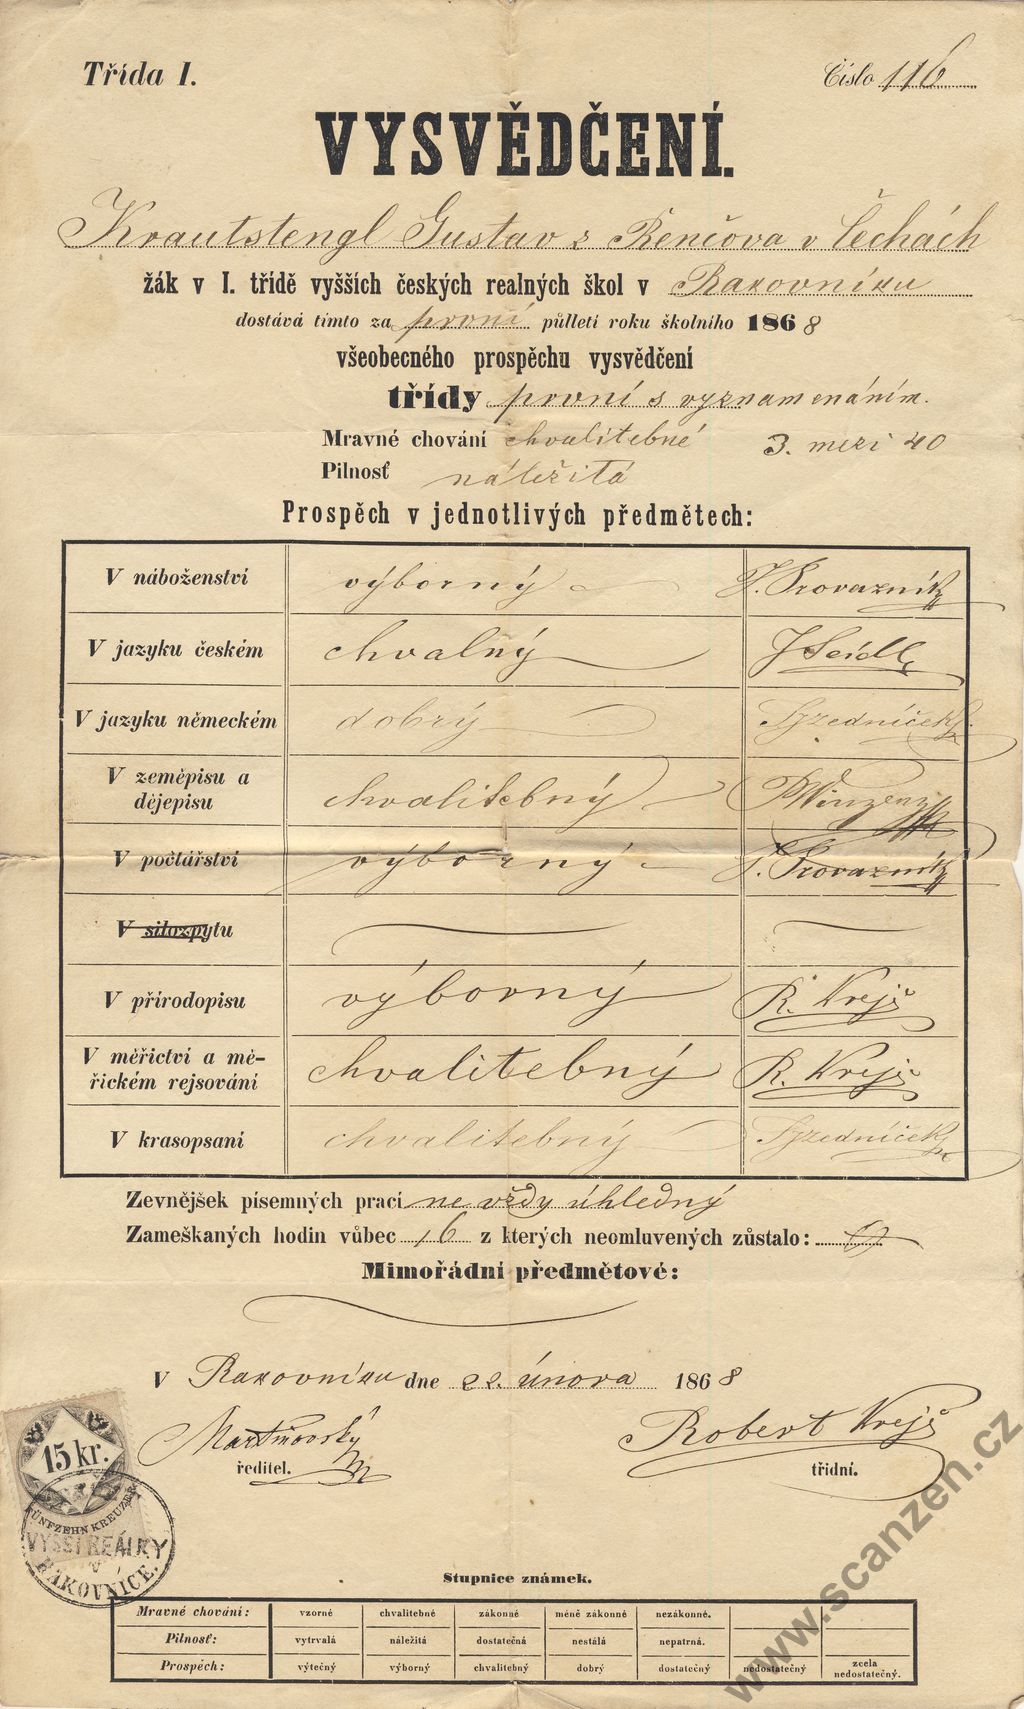 Třída I.
Číslo 116
VYSVĚDČENÍ.
Krautstengl Gustav z Řenčova v Čechách
žák v I. třídě vyšších českých realných škol v Rakovníku
dostává tímto za první půlletí roku školního 1868
všeobecného prospěchu vysvědčení
třídy první s vyznamenáním.
Mravné chování chvalitebné 3. mezi 40
Pilnosť náležitá
Prospěch v jednotlivých předmětech:
V náboženství výborný J. Provazník
V jazyku českém chvalný J Seidl
V jazyku německém dobrý
V zeměpisu a
dějepisu chvalitebný Winzenz
V počtářství výborný J. Provazník
V silozpytu
V přírodopisu výborný R. Krejč
V měřictví a mě-
řickém rejsování chvalitebný R. Krejč
V krasopsaní chvalitebný
Zevnějšek písemných prací ne vždy úhledný
Zameškaných hodin vůbec 16 z kterých neomluvených zůstalo: 0
Mimořádní předmětové:
V Rakovníku dne 22. února 1868
Martinovský Robert Krejč
ředitel. třídní.
15 kr.
FÜNFZEHN KREUZER
VYŠŠÍ REÁLKY
V
RAKOVNÍCE.
Stupnice známek.
Mravné chování: vzorné chvalitebné zákonné méně zákonné nezákonné.
Pilnosť: vytrvalá náležitá dostatečná nestálá nepatrná.
Prospěch: výtečný výborný chvalitebný dobrý dostatečný nedostatečný zcela nedostatečný.
www.scanzen.cz